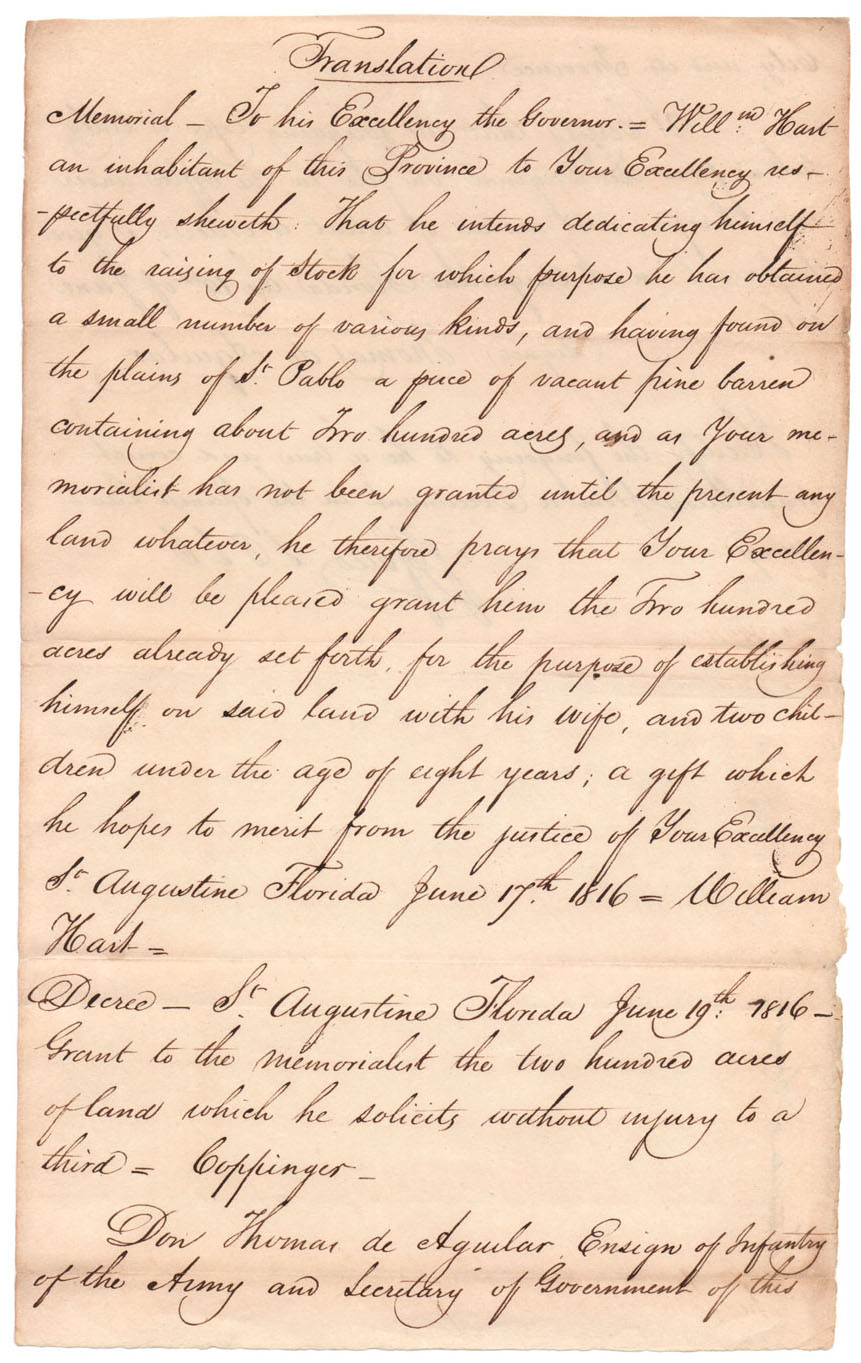 Translation
Memorial – To his Excellency the Governor. = Will.m Hart
an inhabitant of this Province to Your Excellency res-
-pectfully sheweth: That he intends dedicating himself
to the raising of Stock for which purpose he has obtained
a small number of various kinds, and having found on
the plains of St. Pablo a piece of vacant pine barren
containing about Two hundred acres, and as Your me-
morialist has not been granted until the present any
land whatever, he therefore prays that Your Excellen-
-cy will be pleased grant him the Two hundred
acres already set forth, for the purpose of establishing
himself on said land with his wife, and two chil-
dren under the age of eight years; a gift which
he hopes to merit from the justice of Your Excellency
St. Augustine Florida June 17th. 1816 = William
Hart =
Decree – St. Augustine Florida June 19th: 1816 –
Grant to the memorialist the two hundred acres
of land which he solicits without injury to a
third = Coppinger –
Don Thomas de Aguilar Ensign of Infantry
of the Army and Secretary of Government of this